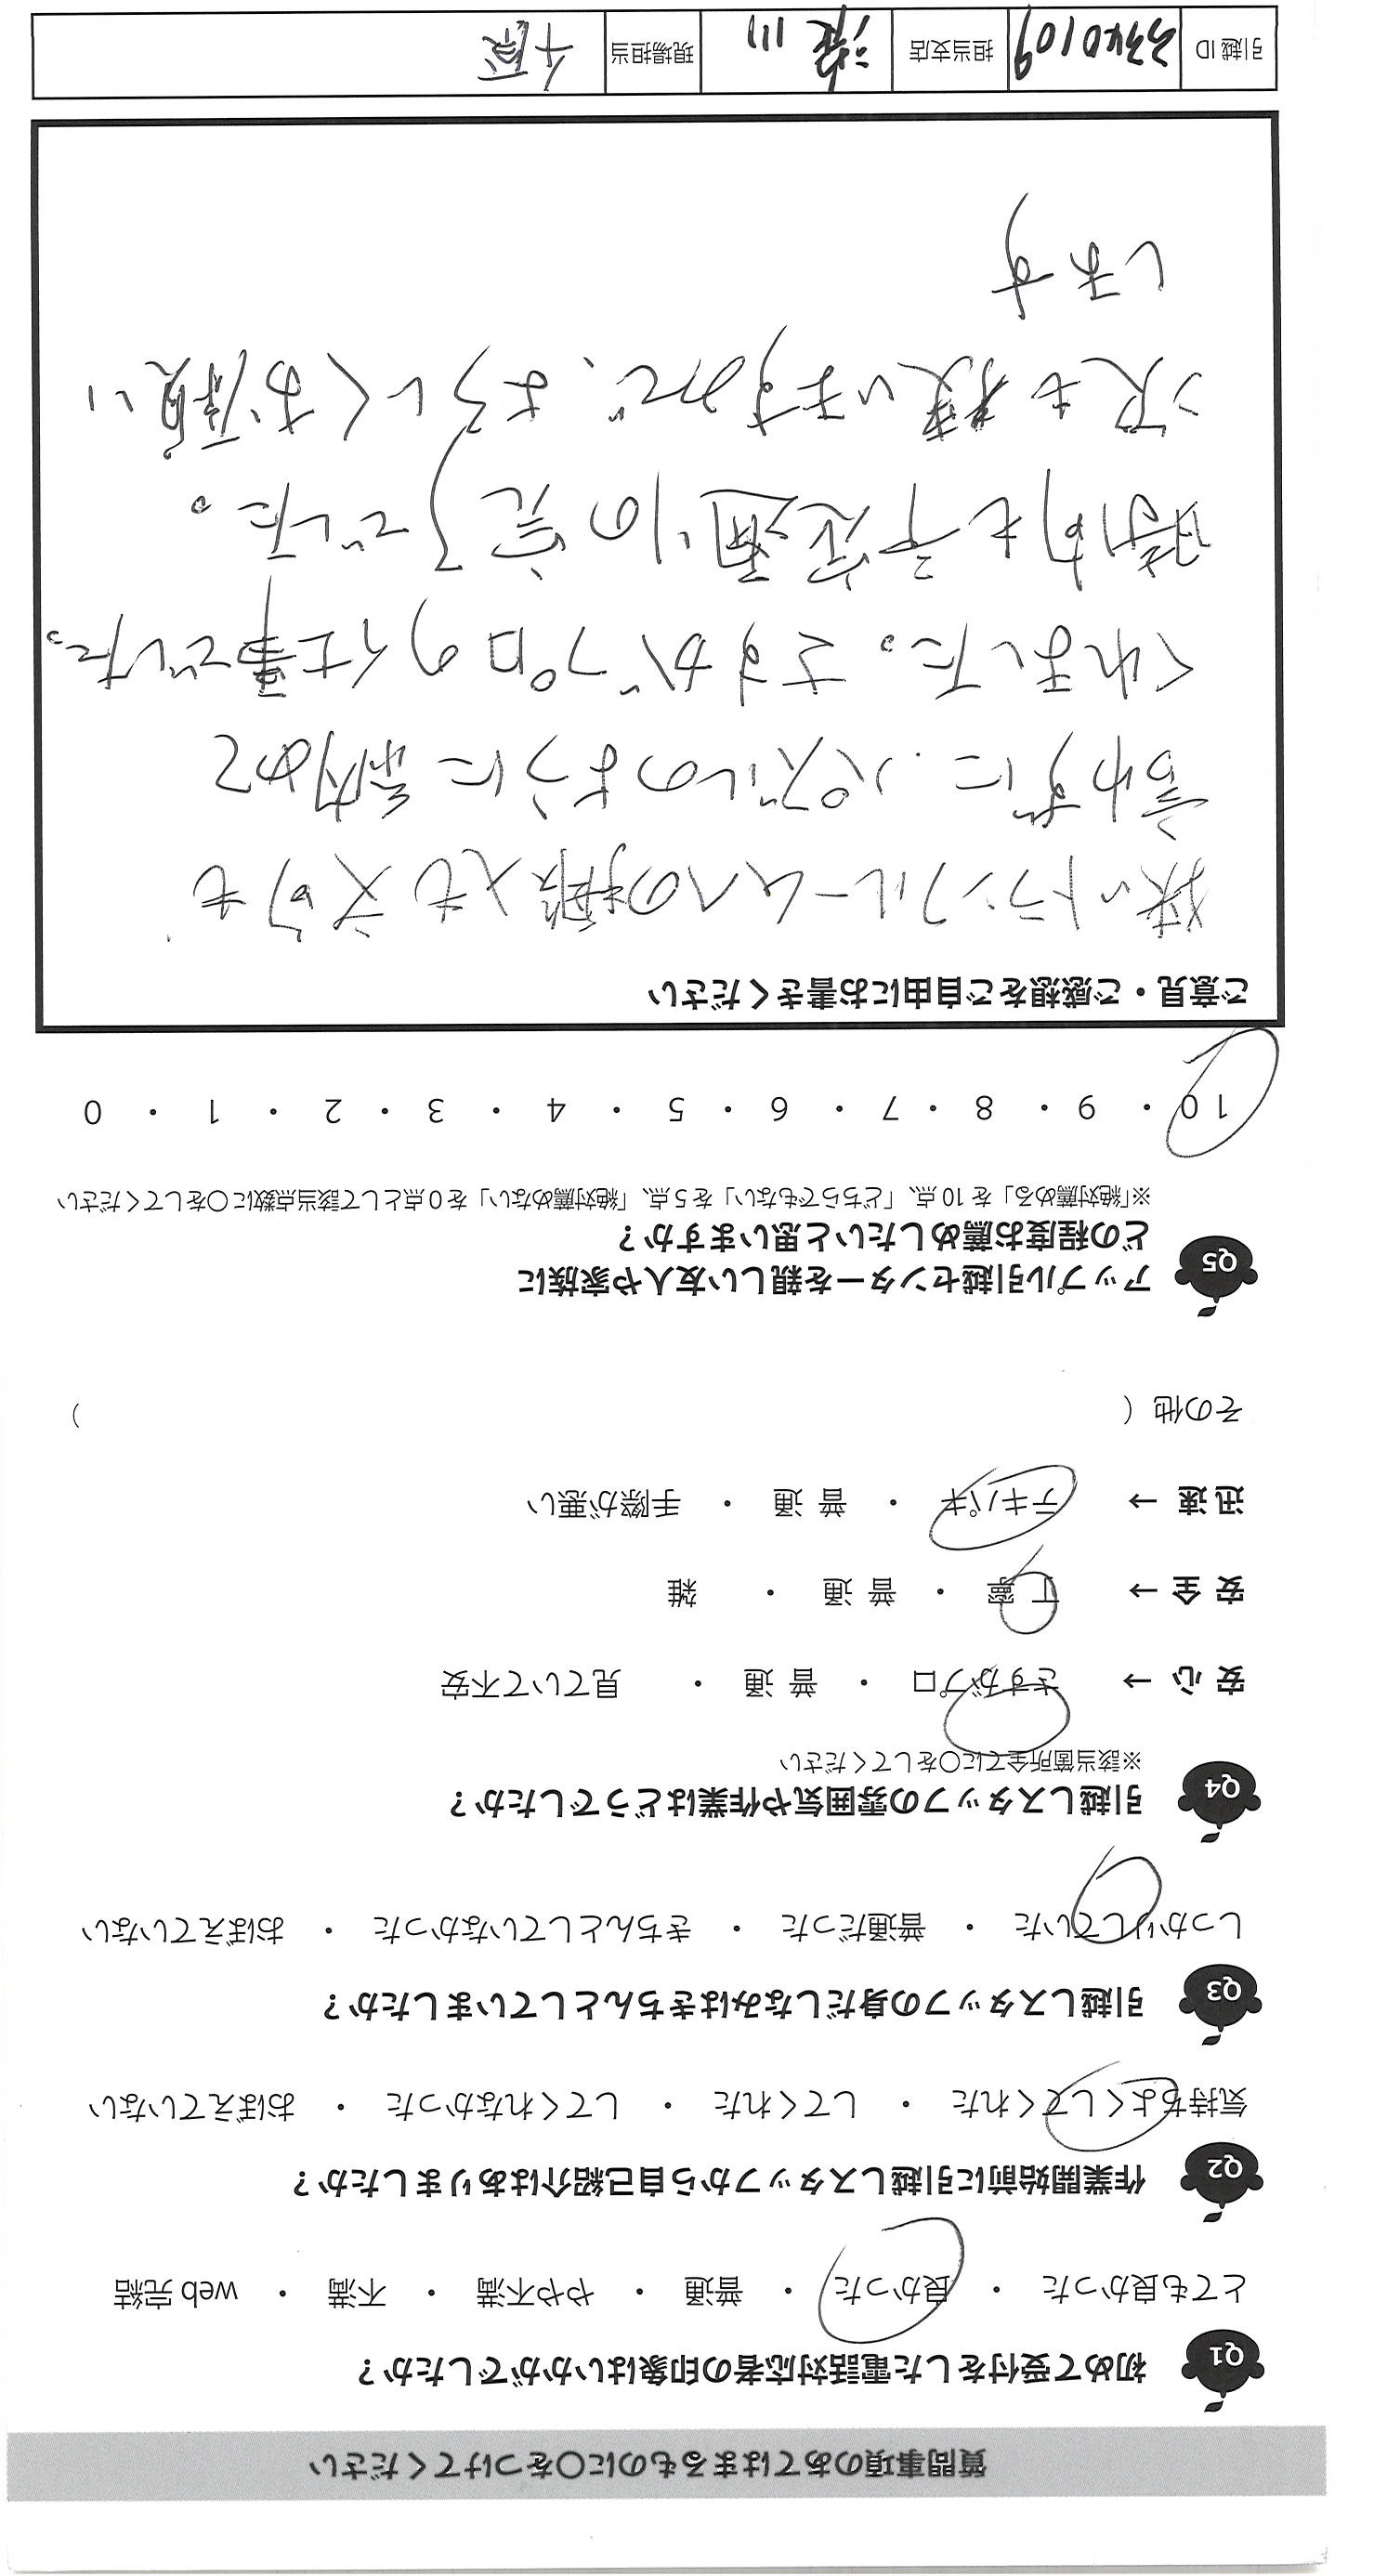 質問事項のあてはまるものに○をつけてください
Q1 初めて受付をした電話対応者の印象はいかがでしたか？
とても良かった ・ 良かった ・ 普通 ・ やや不満 ・ 不満 ・ web 完結
Q2 作業開始前に引越しスタッフから自己紹介はありましたか？
気持ちよくしてくれた ・ してくれた ・ してくれなかった ・ おぼえていない
Q3 引越しスタッフの身だしなみはきちんとしていましたか？
しっかりしていた ・ 普通だった ・ きちんとしていなかった ・ おぼえていない
Q4 引越しスタッフの雰囲気や作業はどうでしたか？
※該当箇所全てに○をしてください
安心 → さすがプロ ・ 普通 ・ 見ていて不安
安全 → 丁寧 ・ 普通 ・ 雑
迅速 → テキパキ ・ 普通 ・ 手際が悪い
その他（ ）
Q5 アップル引越センターを親しい友人や家族に
どの程度お薦めしたいと思いますか？
※「絶対薦める」を 10 点、「どちらでもない」を 5 点、「絶対薦めない」を 0 点として該当点数に○をしてください
10 ・ 9 ・ 8 ・ 7 ・ 6 ・ 5 ・ 4 ・ 3 ・ 2 ・ 1 ・ 0
ご意見・ご感想をご自由にお書きください
狭いトランクルームへの搬入も文句も
言わずに、パズルのように納めて
くれました。さすがプロの仕事でした。
時間も予定通りの完了でした。
次も使いますので、よろしくお願い
します
引越 ID 3340109 担当支店 川 現場担当